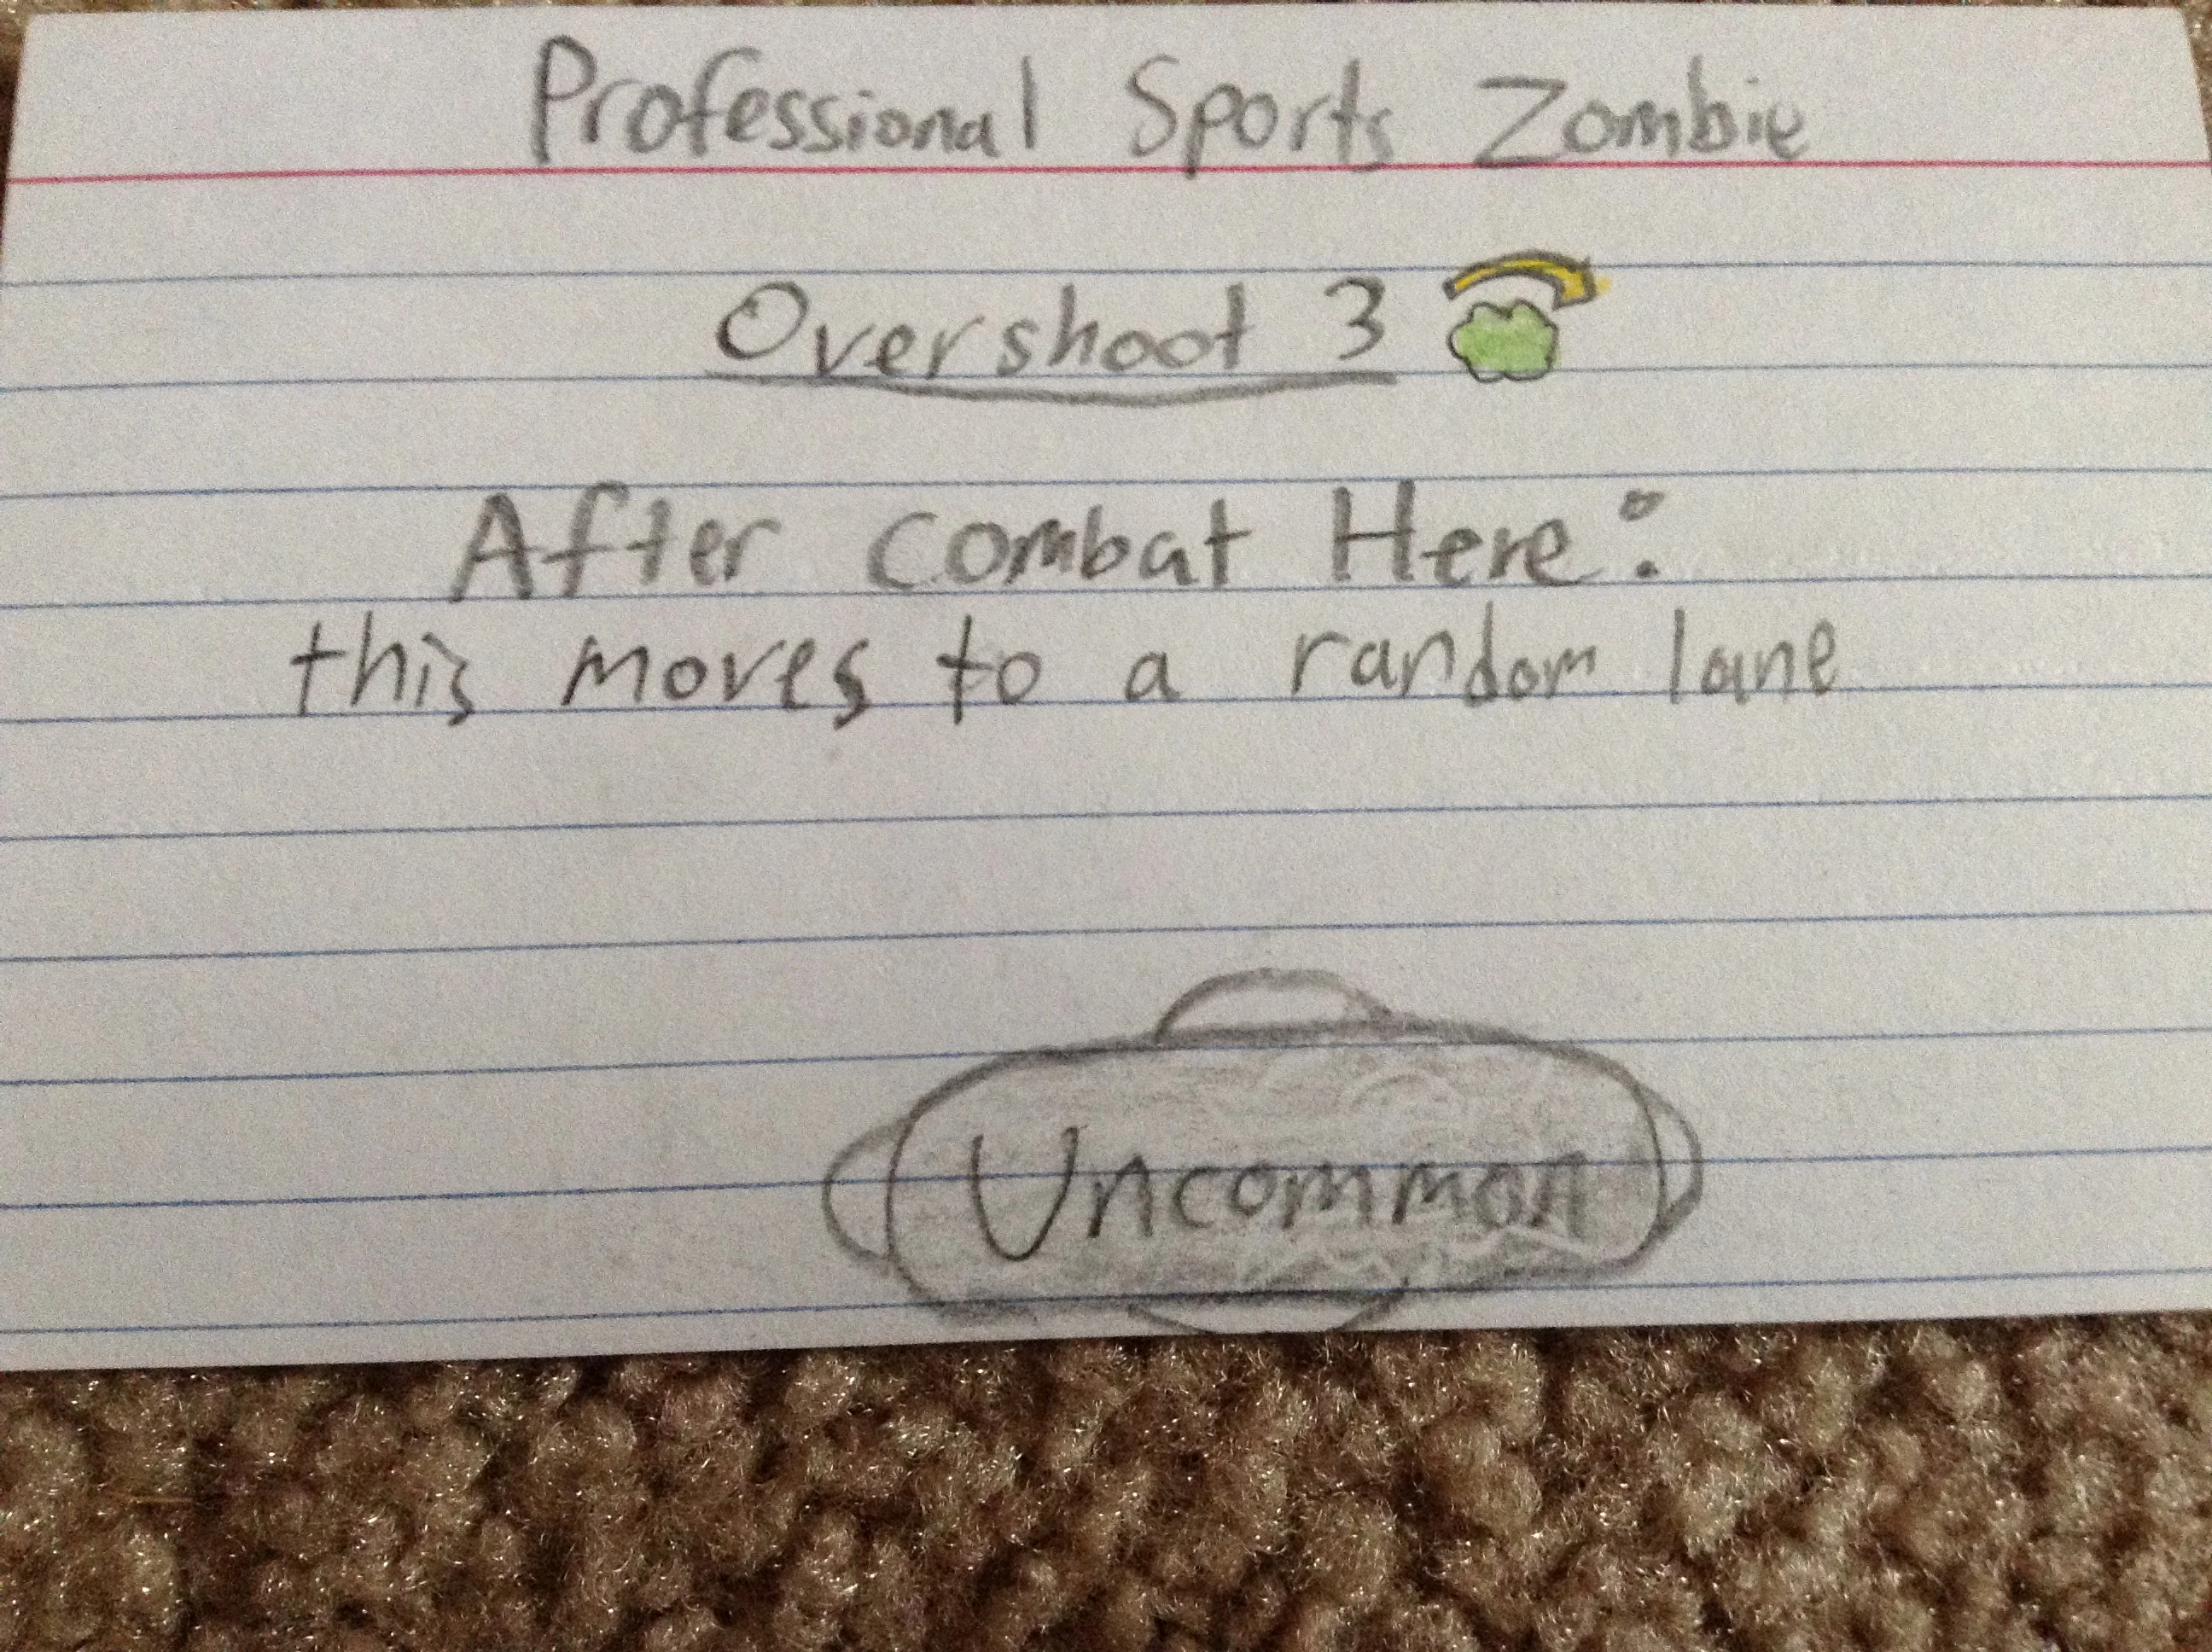 Professional Sports Zombie
Overshoot 3
After combat Here:
this moves to a random lane
Uncommon